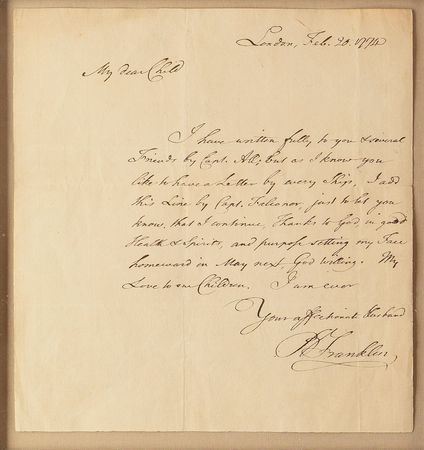 London, Feb. 20. 1774
My dear Child
I have written fully to you & several
Friends by Capt. All; but as I know you
like to have a Letter by every Ship, I add
this Line by Capt. Falconer, just to let you
know, that I continue, Thanks to God, in good
Health & Spirits, and purpose setting my Face
homeward in May next, God willing. My
Love to our Children. I am ever
Your affectionate Husband
B Franklin